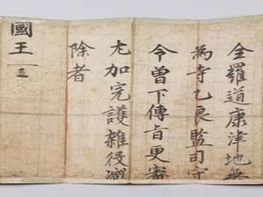 全羅道康津地無
為寺乙良監司守
今曽下傳㫖更審
尤加完護雜役
除者
國王